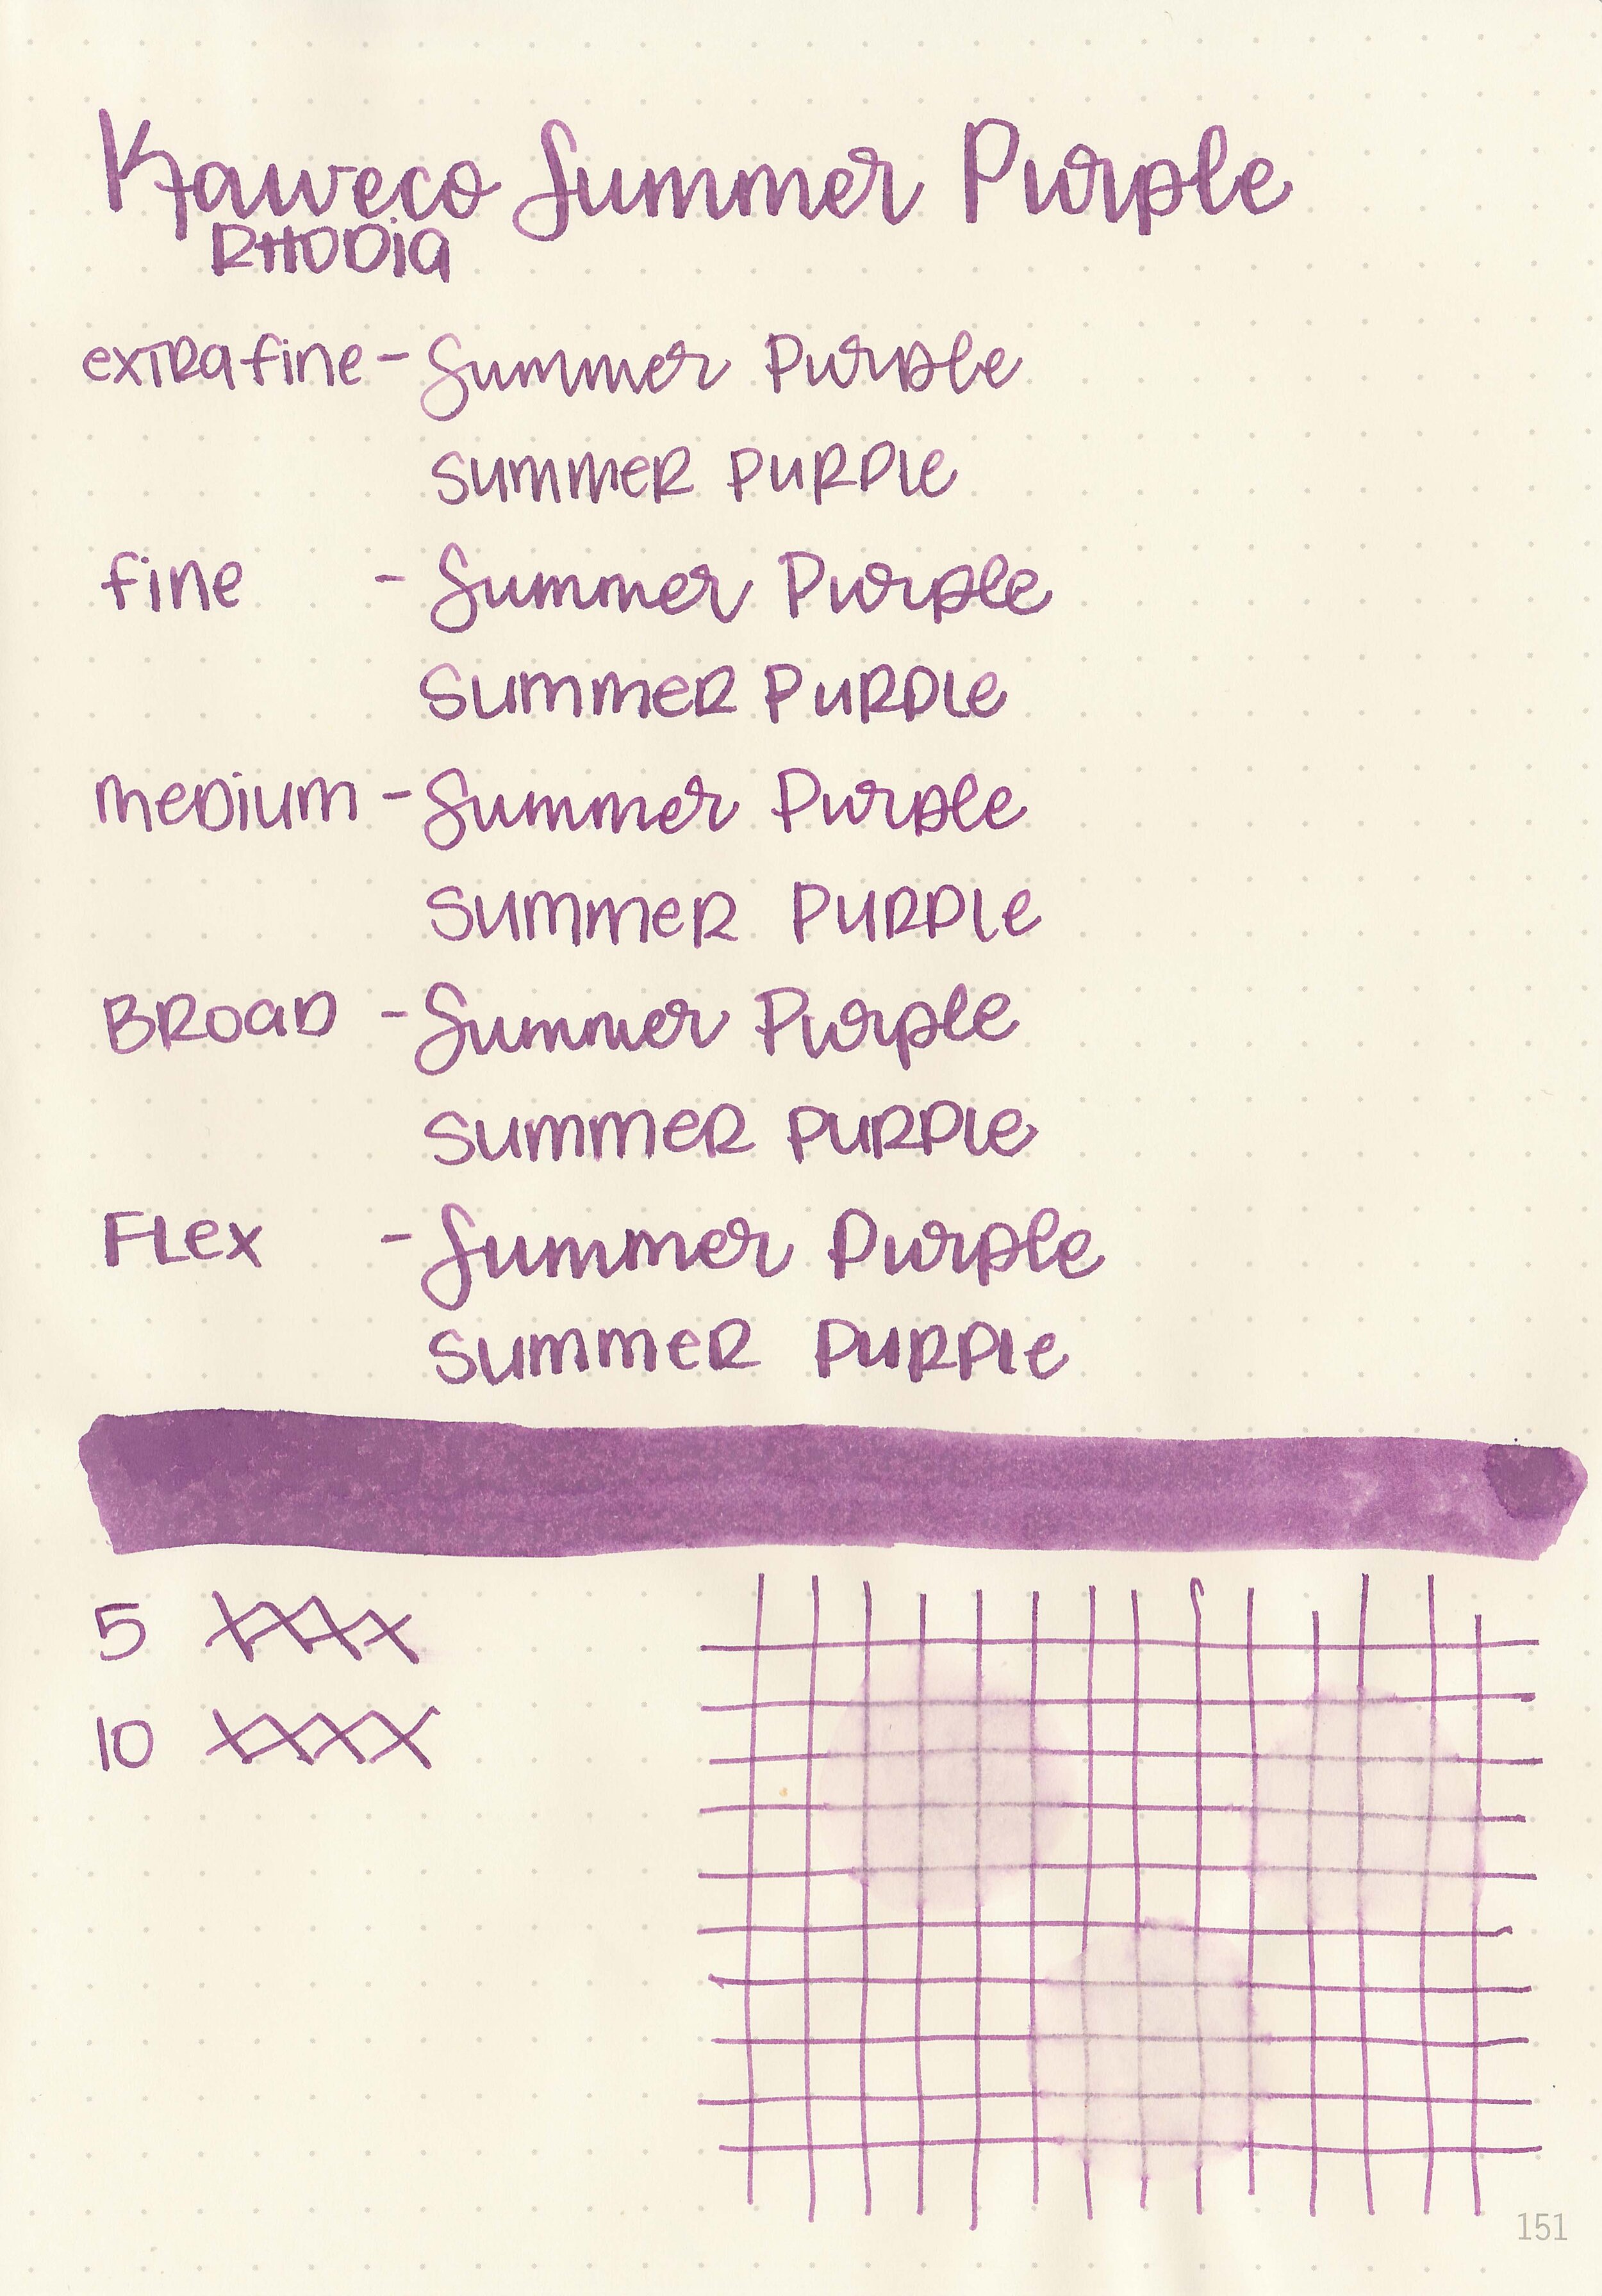 Kaweco Summer Purple
RHODia
exTRafine - Summer Purple
SummeR PuRPle
fine - Summer Purple
SummeR PuRPle
meDium - Summer Purple
SummeR PuRPle
BRoaD - Summer Purple
SummeR PuRPle
FLex - Summer Purple
SummeR PuRPle
5 XXXX
10 XXXX
151